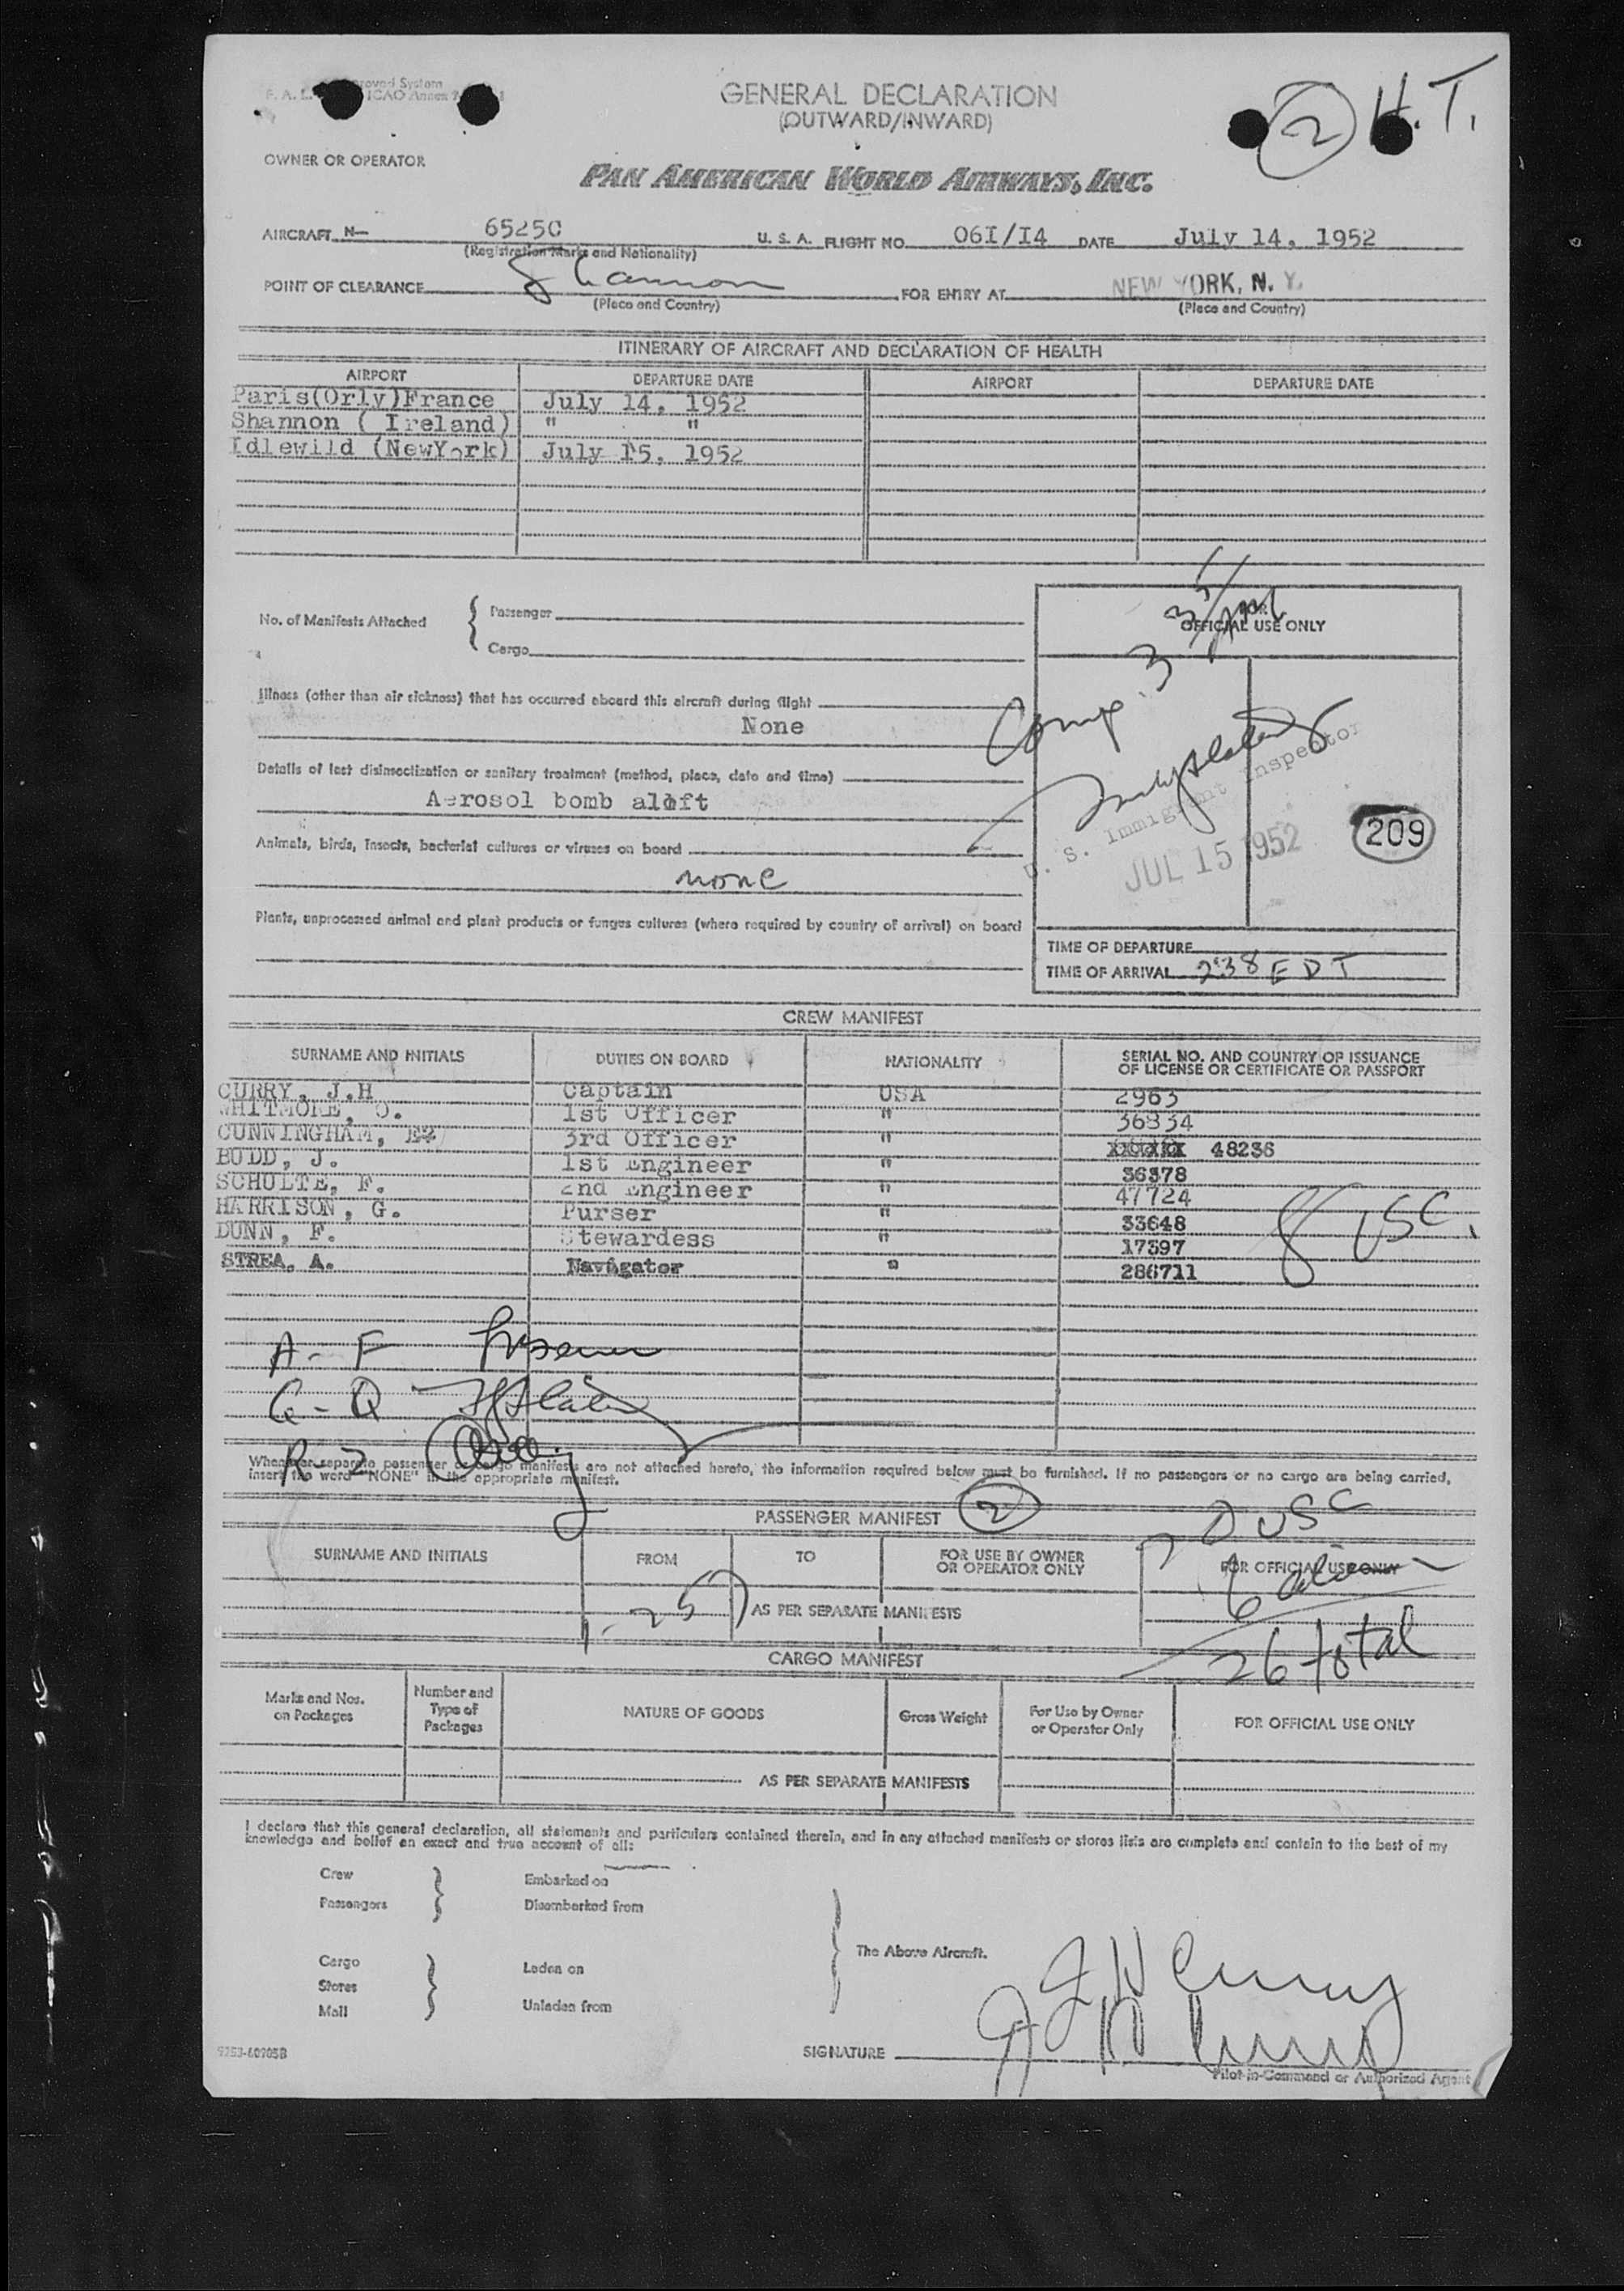 GENERAL DECLARATION
(OUTWARD/INWARD)
H.T.
2
OWNER OR OPERATOR
PAN AMERICAN WORLD AIRWAYS, INC.
AIRCRAFT N- 6525C U. S. A. FLIGHT NO. 06I/I4 DATE July 14, 1952
(Registration Marks and Nationality)
POINT OF CLEARANCE Shannon FOR ENTRY AT NEW YORK, N. Y.
(Place and Country) (Place and Country)
ITINERARY OF AIRCRAFT AND DECLARATION OF HEALTH
AIRPORT DEPARTURE DATE AIRPORT DEPARTURE DATE
Paris(Orly)France July 14, 1952
Shannon ( Ireland) " "
Idlewild (NewYork) July 15, 1952
No. of Manifests Attached { Passenger
Cargo
FOR
OFFICIAL USE ONLY
Illness (other than air sickness) that has occurred aboard this aircraft during flight
None
Details of last disinsectization or sanitary treatment (method, place, date and time)
Aerosol bomb aloft
Animals, birds, insects, bacterial cultures or viruses on board
none
Plants, unprocessed animal and plant products or fungus cultures (where required by country of arrival) on board
Comp. 3
U. S. Immigrant Inspector
JUL 15 1952
209
TIME OF DEPARTURE
TIME OF ARRIVAL 238 EDT
CREW MANIFEST
SURNAME AND INITIALS DUTIES ON BOARD NATIONALITY SERIAL NO. AND COUNTRY OF ISSUANCE
OF LICENSE OR CERTIFICATE OR PASSPORT
CURRY, J.H Captain USA 2963
WHITMORE, O. 1st Officer " 36834
CUNNINGHAM, 3rd Officer " 48236
BUDD, J. 1st Engineer " 36378
SCHULTE, F. 2nd Engineer " 47724
HARRISON, G. Purser " 33648
DUNN, F. Stewardess " 17397
STREA, A. Navigator " 286711
8 USC.
A - F
G - Q
R - Z
Whenever separate passenger or cargo manifests are not attached hereto, the information required below must be furnished. If no passengers or no cargo are being carried,
insert the word "NONE" in the appropriate manifest.
PASSENGER MANIFEST 2
20 USC
SURNAME AND INITIALS FROM TO FOR USE BY OWNER
OR OPERATOR ONLY FOR OFFICIAL USE ONLY
6 alien
1-25 AS PER SEPARATE MANIFESTS
26 total
CARGO MANIFEST
Marks and Nos.
on Packages Number and
Type of
Packages NATURE OF GOODS Gross Weight For Use by Owner
or Operator Only FOR OFFICIAL USE ONLY
AS PER SEPARATE MANIFESTS
I declare that this general declaration, all statements and particulars contained therein, and in any attached manifests or stores lists are complete and contain to the best of my
knowledge and belief an exact and true account of all:
Crew Embarked on
Passengers Disembarked from
The Above Aircraft.
Cargo Laden on
Stores
Mail Unladen from
J H Curry
SIGNATURE
Pilot-in-Command or Authorized Agent
9253-60905B